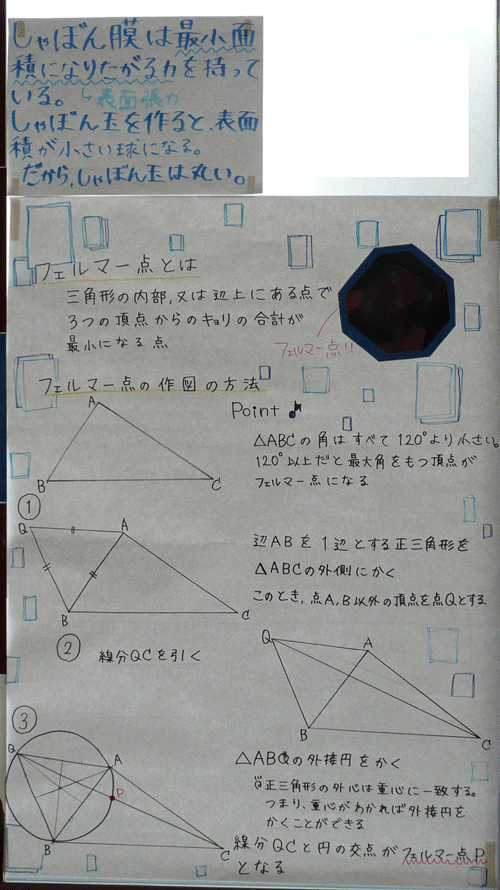 しゃぼん膜は最小面
積になりたがる力を持って
いる。 ↳表面張力
しゃぼん玉を作ると、表面
積が小さい球になる。
だから、しゃぼん玉は丸い。
フェルマー点とは
三角形の内部,又は辺上にある点で
3つの頂点からのキョリの合計が
最小になる点
フェルマー点!!
フェルマー点の作図の方法
Point♪
A
B
C
△ABCの角はすべて120°より小さい。
120°以上だと最大角をもつ頂点が
フェルマー点になる
①
Q
A
B
C
辺ABを1辺とする正三角形を
△ABCの外側にかく
このとき,点A,B以外の頂点を点Qとする
②
線分QCを引く
Q
A
B
C
③
Q
A
P
B
C
△ABQの外接円をかく
正三角形の外心は重心に一致する。
つまり、重心がわかれば外接円を
かくことができる
線分QCと円の交点がフェルマー点P
となる